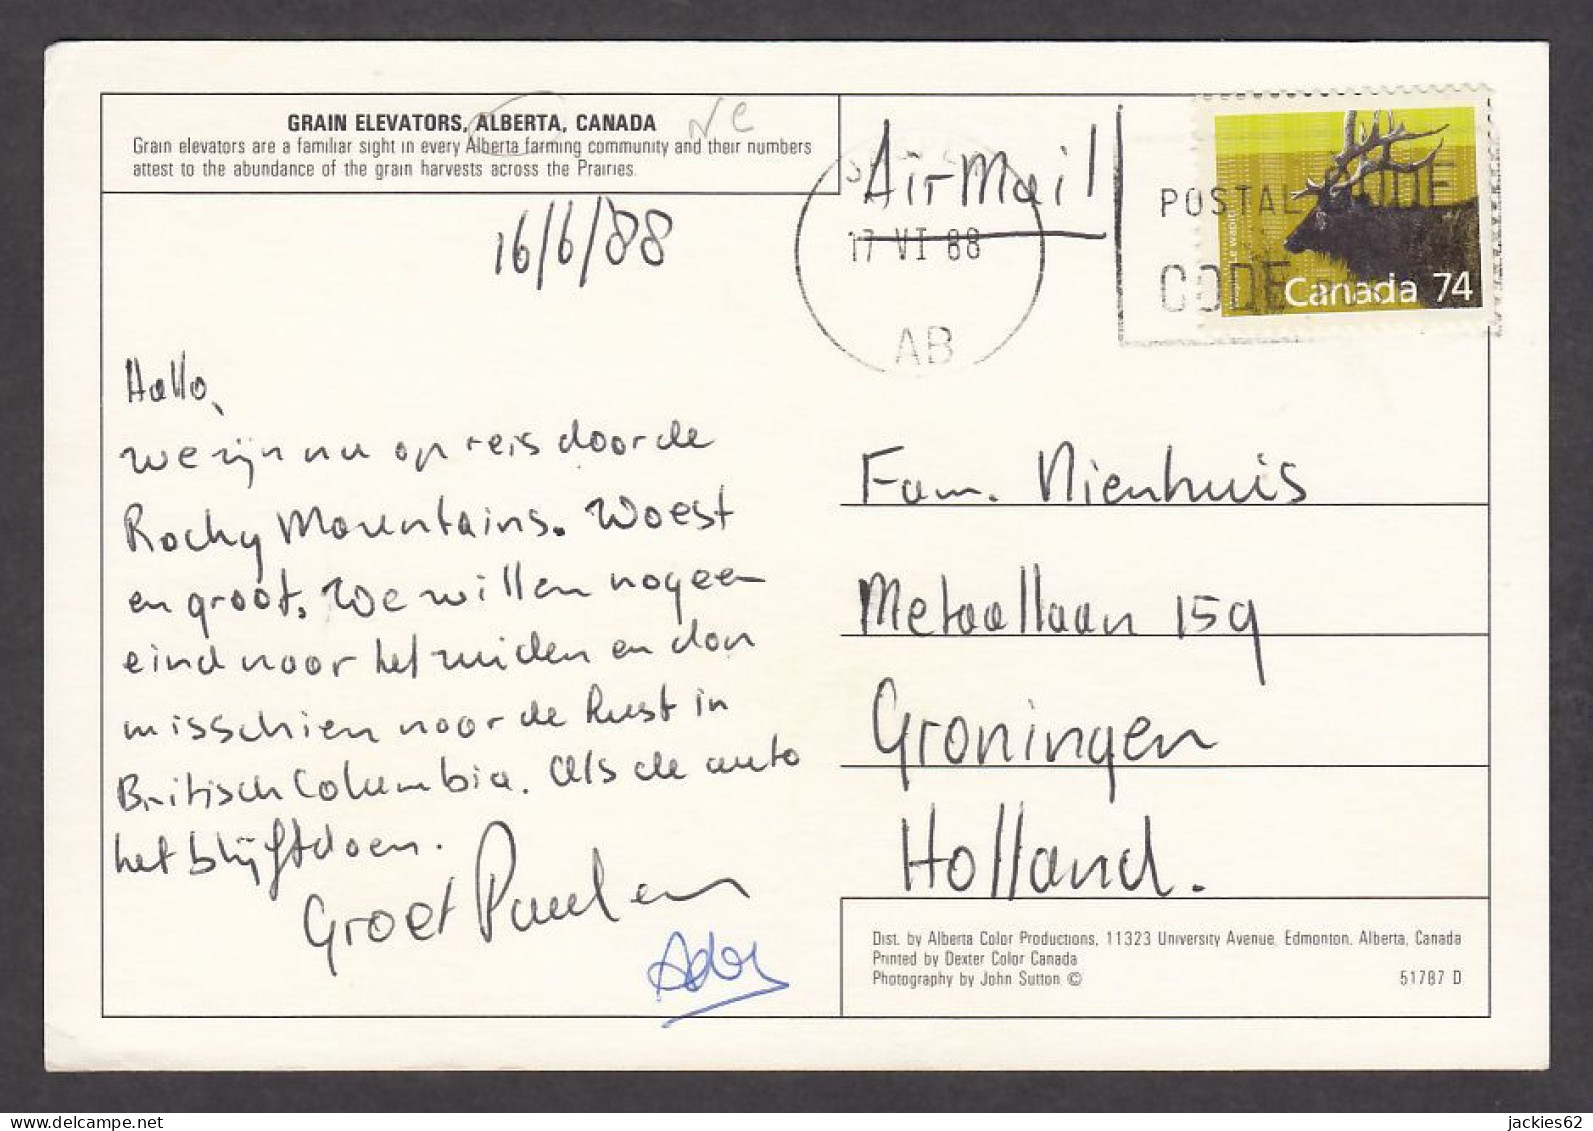 GRAIN ELEVATORS, ALBERTA, CANADA
Grain elevators are a familiar sight in every Alberta farming community and their numbers
attest to the abundance of the grain harvests across the Prairies.
NC
16/6/88
Air Mail
17 VI 88
AB
POSTAL CODE
CODE
Canada 74
Hallo,
we zijn nu op reis door de
Rocky Mountains. Woest
en groot. We willen nog een
eind naar het zuiden en dan
misschien naar de kust in
Britisch Columbia. Als de auto
het blijft doen.
Groet Paul en
Ada
Fam. Nienhuis
Metaallaan 159
Groningen
Holland.
Dist. by Alberta Color Productions, 11323 University Avenue, Edmonton, Alberta, Canada
Printed by Dexter Color Canada
Photography by John Sutton ©
51787 D
jackies62